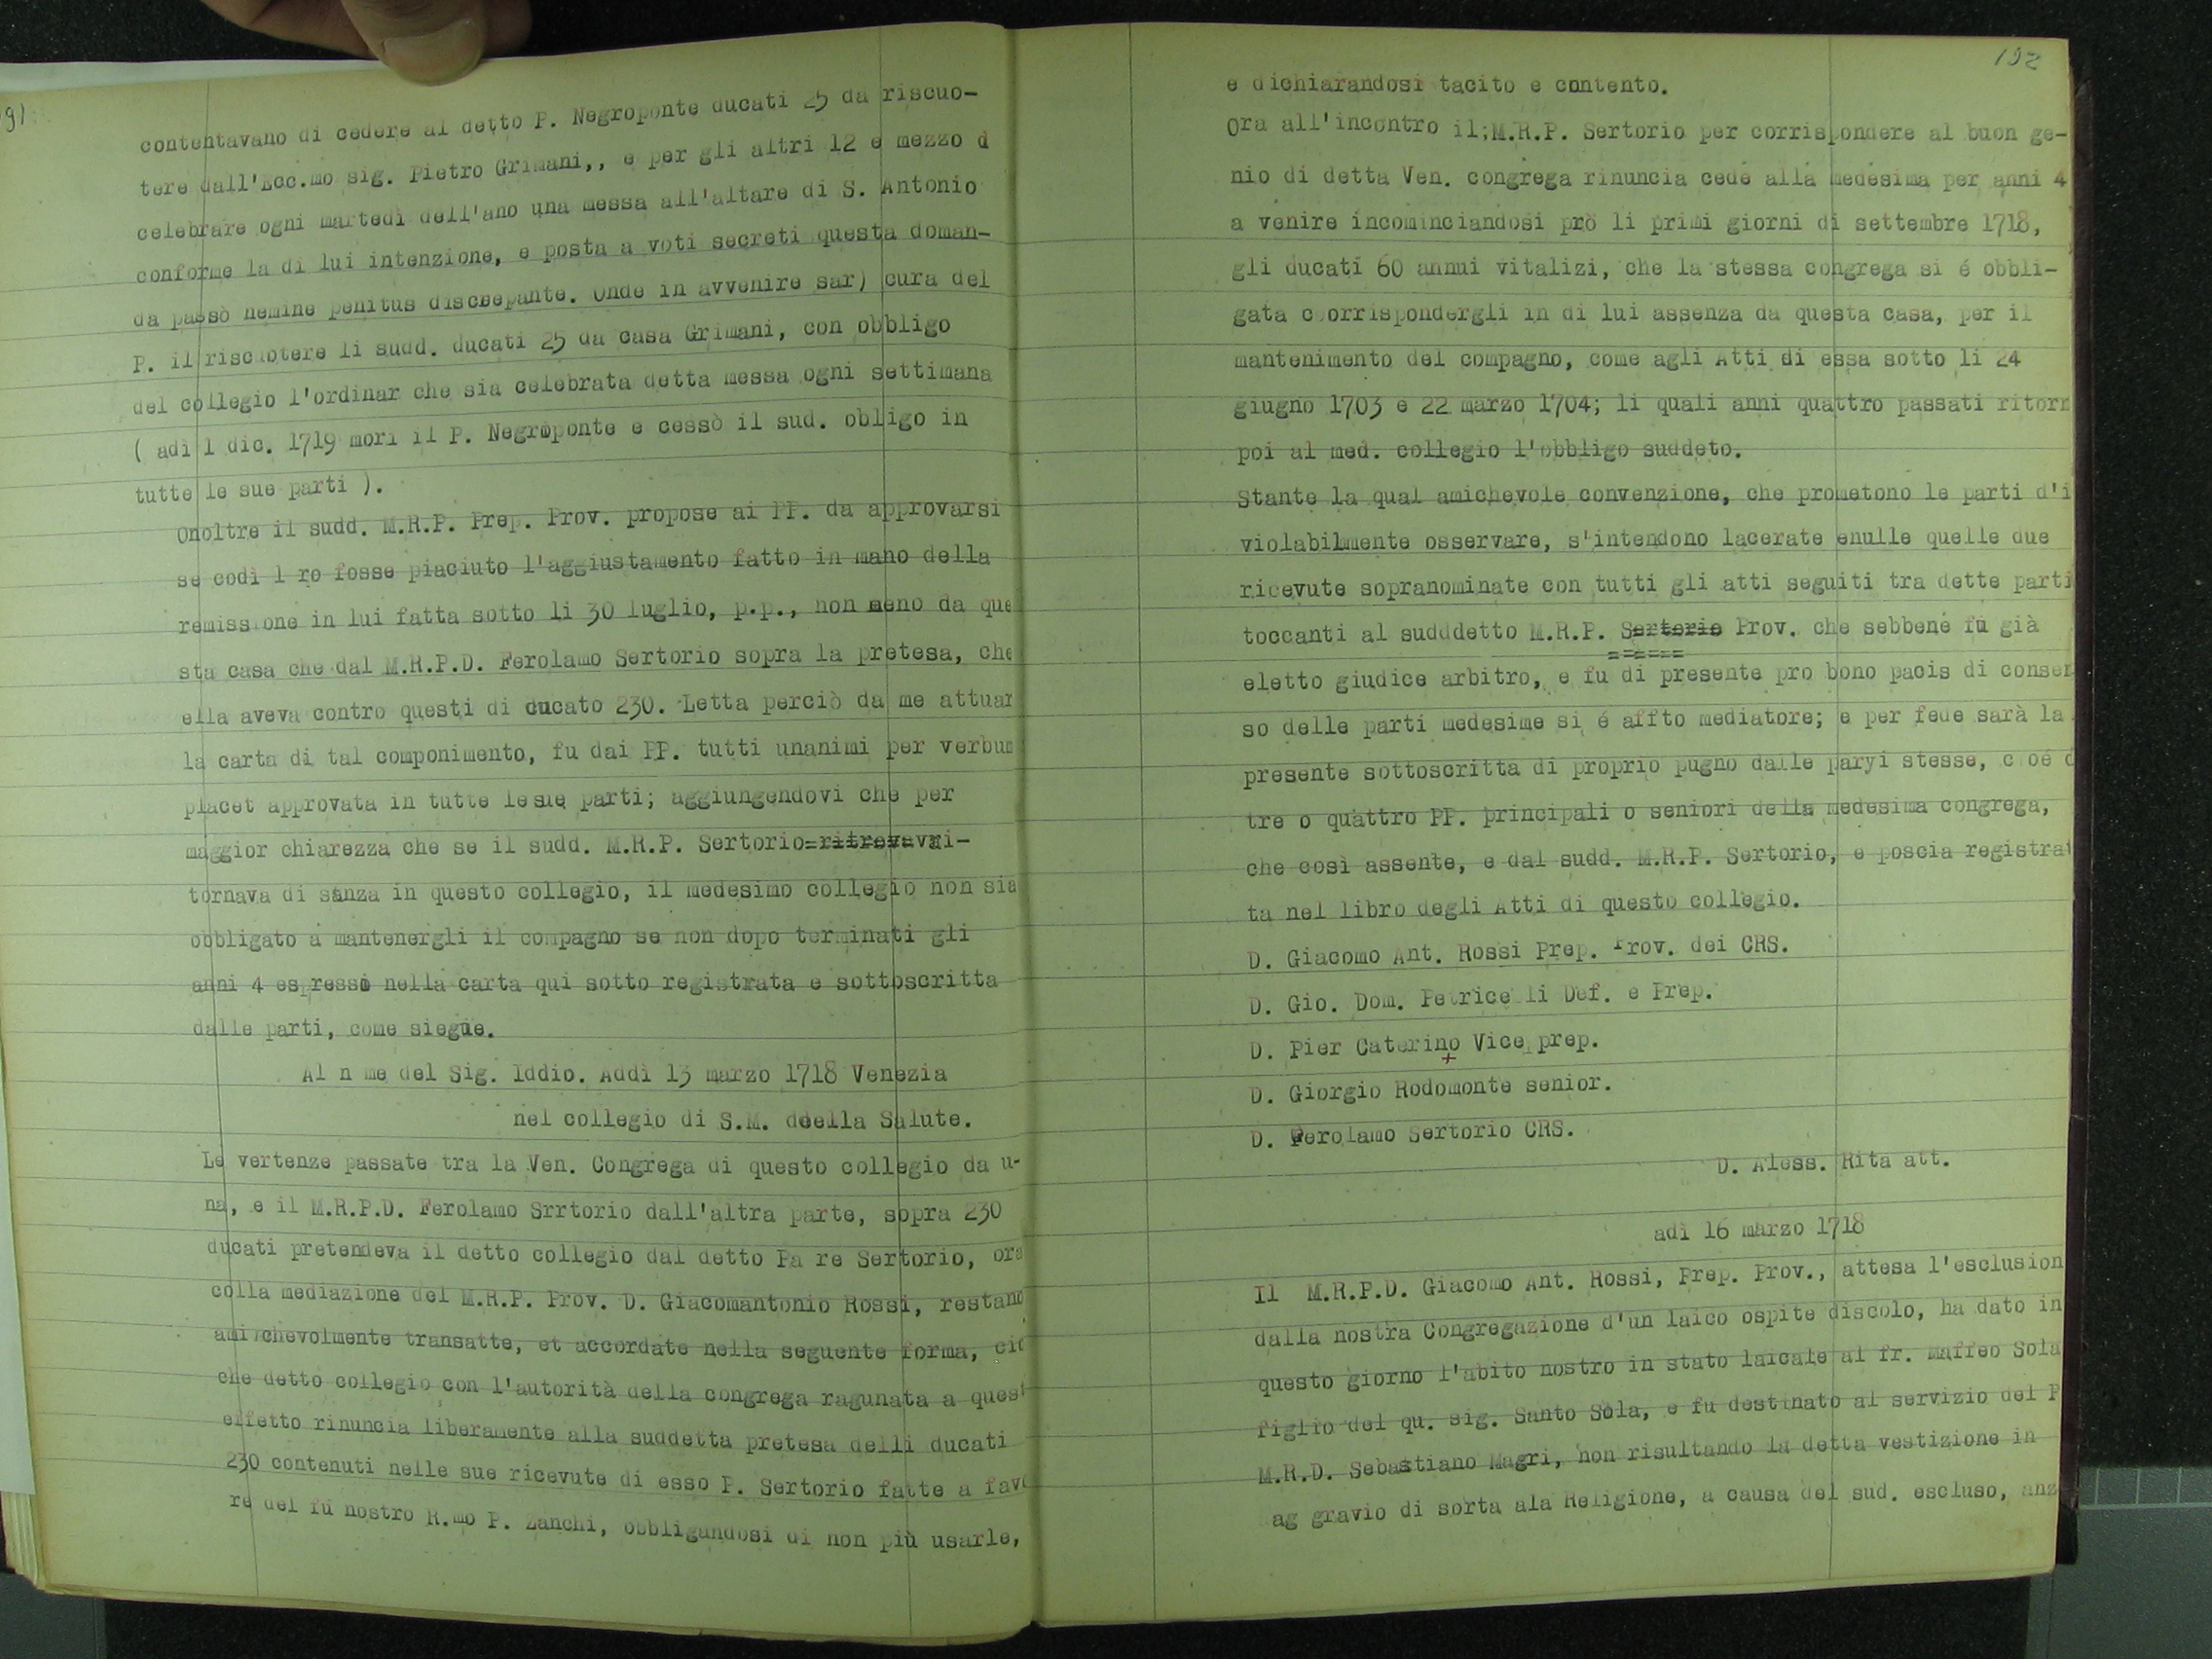 191
contentavano di cedere al detto P. Negroponte ducati 25 da riscuo-
tere dall'Ecc.mo sig. Pietro Grimani,, e per gli altri 12 e mezzo d
celebrare ogni martedì dell'ano una messa all'altare di S. Antonio
conforme la di lui intenzione, e posta a voti secreti questa doman-
da passò nemine penitus discrepante. Onde in avvenire sar) cura del
P. il riscuotere li sudd. ducati 25 da casa Grimani, con obbligo
del collegio l'ordinar che sia celebrata detta messa ogni settimana
( adì 1 dic. 1719 morì il P. Negroponte e cessò il sud. obligo in
tutte le sue parti ).
Onoltre il sudd. M.R.P. Prep. Prov. propose ai PP. da approvarsi
se codì l ro fosse piaciuto l'aggiustamento fatto in mano della
remissione in lui fatta sotto li 30 luglio, p.p., non meno da que
sta casa che dal M.R.P.D. Ferolamo Sertorio sopra la pretesa, che
ella aveva contro questi di ducato 230. Letta perciò da me attuar
la carta di tal componimento, fu dai PP. tutti unanimi per verbum
placet approvata in tutte lesue parti; aggiungendovi che per
maggior chiarezza che se il sudd. M.R.P. Sertorio ri-
tornava di stanza in questo collegio, il medesimo collegio non sia
obbligato a mantenergli il compagno se non dopo terminati gli
anni 4 espresso nella carta qui sotto registrata e sottoscritta
dalle parti, come siegue.
Al n me del Sig. Iddio. Addì 13 marzo 1718 Venezia
nel collegio di S.M. ddella Salute.
Le vertenze passate tra la Ven. Congrega di questo collegio da u-
na, e il M.R.P.D. Ferolamo Srrtorio dall'altra parte, sopra 230
ducati pretendeva il detto collegio dal detto Pa re Sertorio, ora
colla mediazione del M.R.P. Prov. D. Giacomantonio Rossi, restano
ami chevolmente transatte, et accordate nella seguente forma, cio
che detto collegio con l'autorità della congrega ragunata a quest
effetto rinuncia liberamente alla suddetta pretesa delli ducati
230 contenuti nelle sue ricevute di esso P. Sertorio fatte a favo
re del fu nostro R.mo P. Zanchi, obbligandosi di non più usarle,
192
e dichiarandosi tacito e contento.
Ora all'incontro il;M.R.P. Sertorio per corrispondere al buon ge-
nio di detta Ven. congrega rinuncia cede alla medesima per anni 4
a venire incominciandosi prò li primi giorni di settembre 1718,
gli ducati 60 annui vitalizi, che la stessa congrega si é obbli-
gata c orrispondergli in di lui assenza da questa casa, per il
mantenimento del compagno, come agli Atti di essa sotto li 24
giugno 1703 e 22 marzo 1704; li quali anni quattro passati ritorn
poi al med. collegio l'obbligo suddeto.
Stante la qual amichevole convenzione, che prometono le parti d'i
violabilmente osservare, s'intendono lacerate enulle quelle due
ricevute sopranominate con tutti gli atti seguiti tra dette parti
toccanti al sudddetto M.R.P. Sertorio Prov. che sebbene fu già
eletto giudice arbitro, e fu di presente pro bono pacis di consen
so delle parti medesime si é affto mediatore; e per fede sarà la
presente sottoscritta di proprio pugno dalle paryi stesse, c oé d
tre o quattro PP. principali o seniori della medesima congrega,
che così assente, e dal sudd. M.R.P. Sertorio, e poscia registrat
ta nel libro degli Atti di questo collegio.
D. Giacomo Ant. Rossi Prep. Prov. dei CRS.
D. Gio. Dom. Petricelli Def. e Prep.
D. Pier Caterino Vice prep.
D. Giorgio Rodomonte senior.
D. Ferolamo Sertorio CRS.
D. Aless. Rita att.
adì 16 marzo 1718
Il M.R.P.D. Giacomo Ant. Rossi, Prep. Prov., attesa l'esclusion
dalla nostra Congregazione d'un laico ospite discolo, ha dato in
questo giorno l'abito nostro in stato laicale al fr. Maffeo Sola
figlio del qu. sig. Santo Sola, e fu destinato al servizio del P
M.R.D. Sebastiano Magri, non risultando la detta vestizione in
ag gravio di sorta ala Religione, a causa del sud. escluso, anz